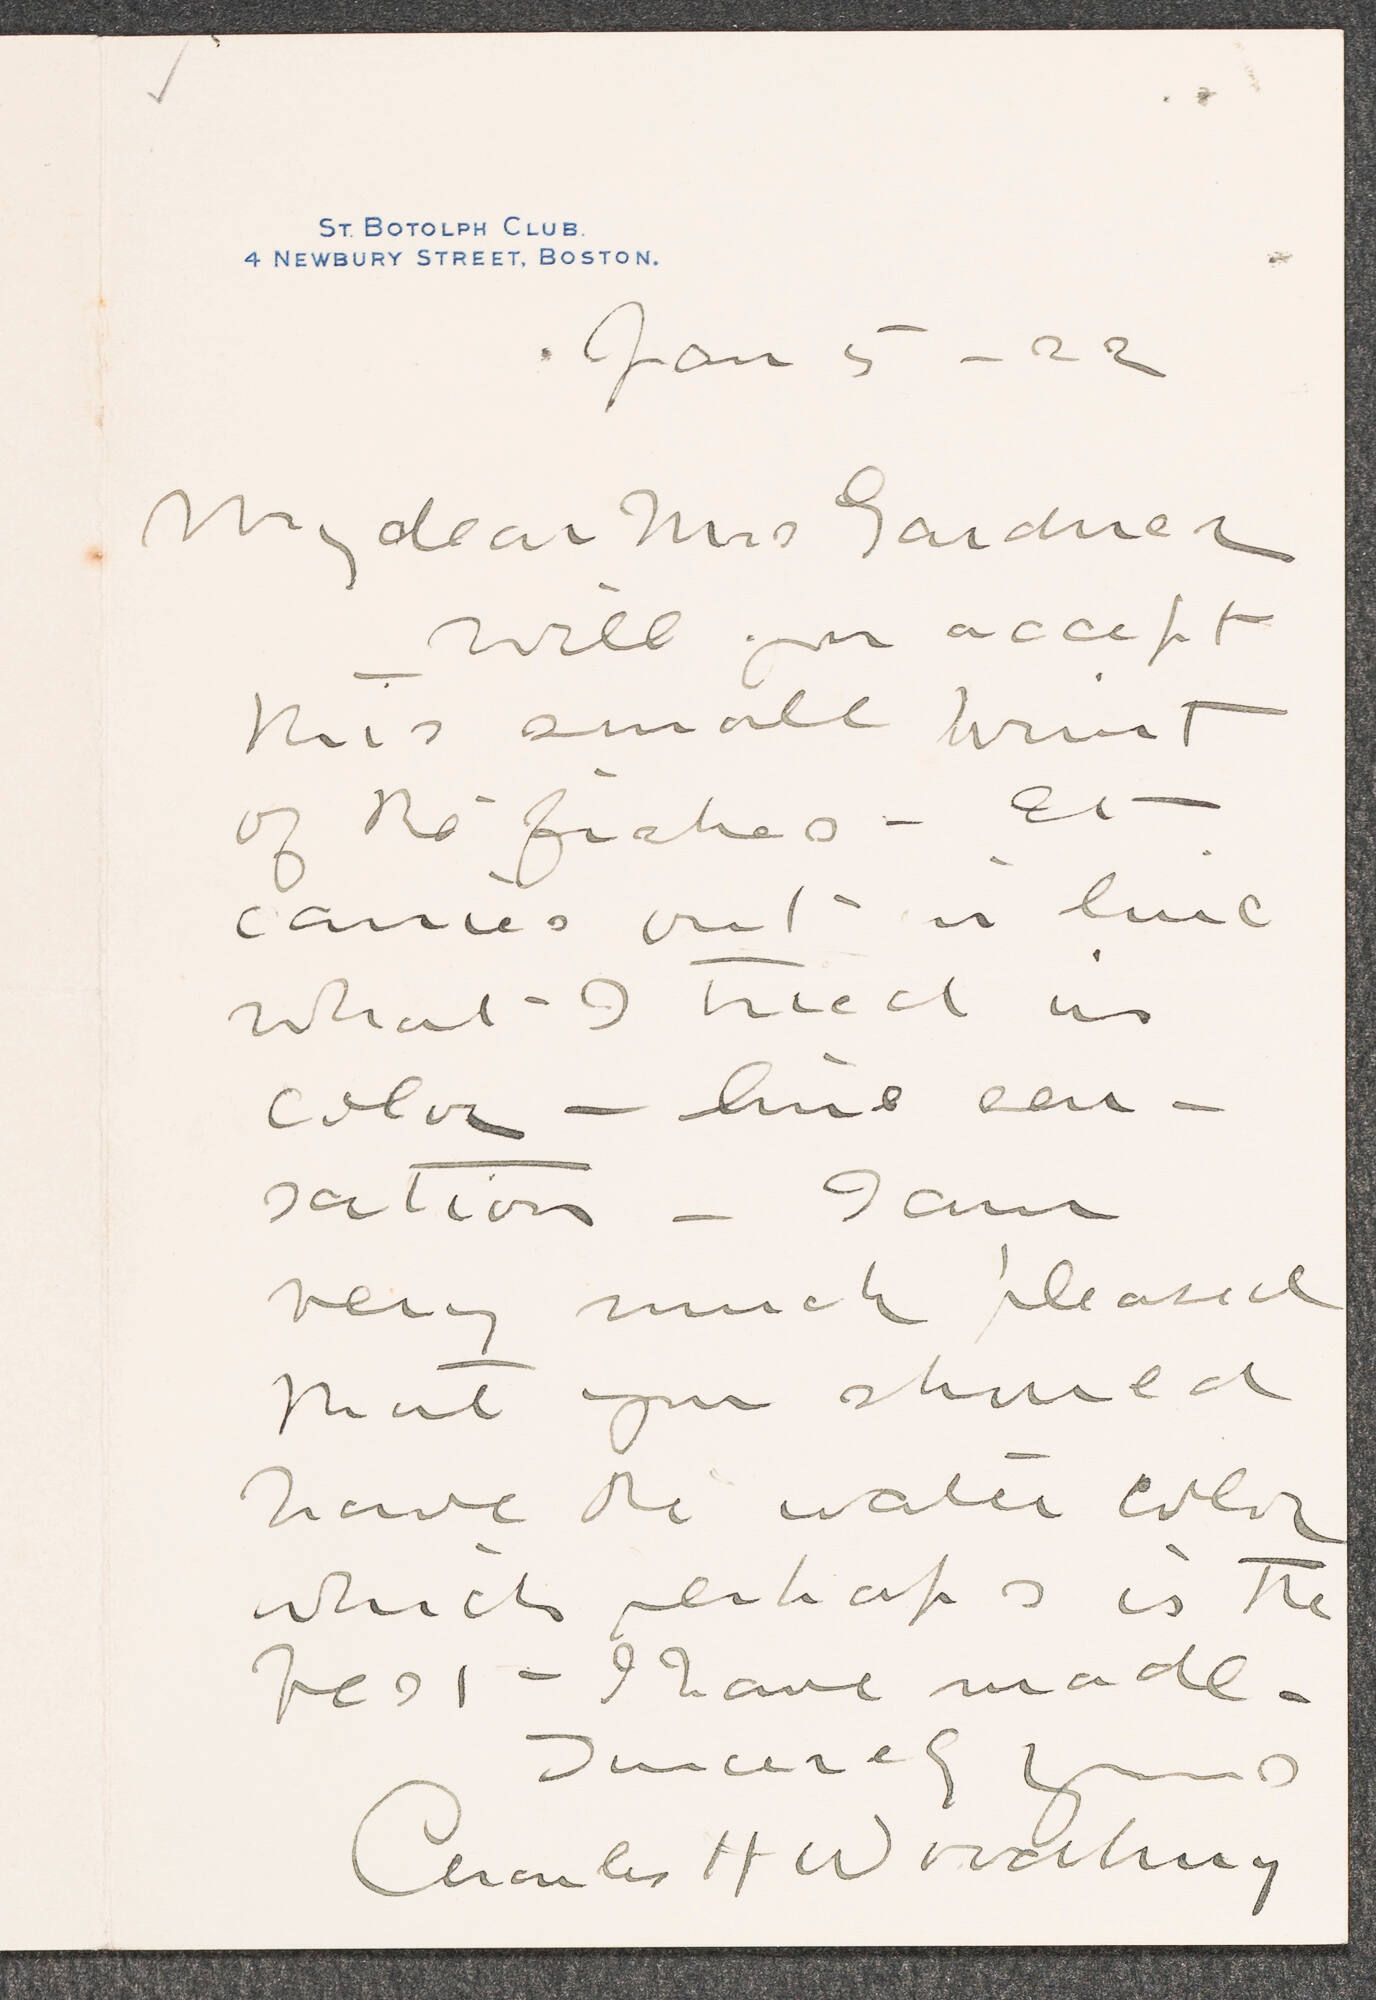 ST. BOTOLPH CLUB.
4 NEWBURY STREET, BOSTON.
Jan 5 - 22
My dear Mrs Gardner
Will you accept
this small print
of the fishes - It
carries out in line
what I tried in
color - line sen-
sation - I am
very much pleased
that you should
have the water color
which perhaps is the
best - I have made -
Sincerely yours
Charles H Woodbury